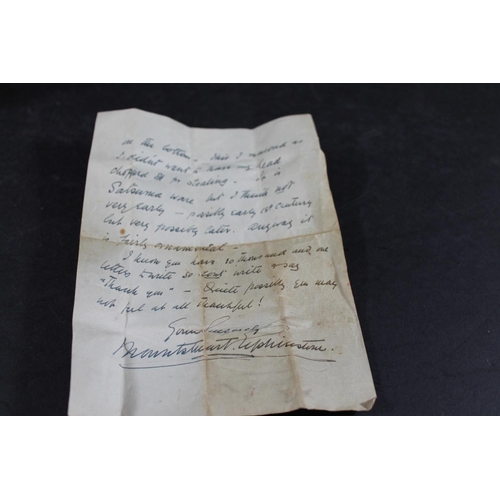 on the bottom - said I
I didn't want to have my head
chopped off for stealing. It is
Satsuma ware but I think not
very early - possibly early 19th century
but very possibly later. Anyway it
is fairly ornamental -
I know you have 10 thousand and one
letters to write so don't write & say
"Thank you" - Quite possibly you may
not feel at all thankful!
Yours sincerely
Mountstuart Elphinstone.